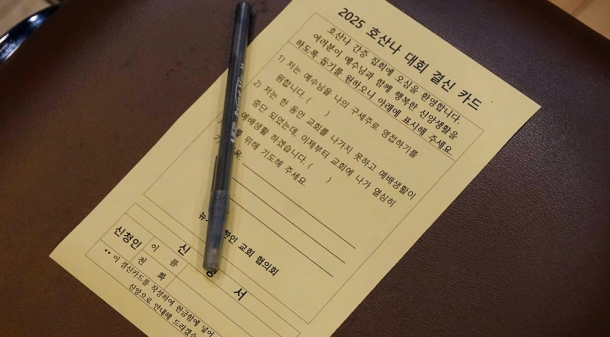 2025 호산나 대회 결신 카드
호산나 간증 집회에 오심을 환영합니다.
여러분이 예수님과 함께 행복한 신앙생활을
하도록 돕기를 원하오니 아래에 표시해 주세요.
1) 저는 예수님을 나의 구세주로 영접하기를
원합니다. ( )
2) 저는 한 동안 교회를 나가지 못하고 예배생활이
중단 되었는데, 이제부터 교회에 나가 열심히
예배생활 하겠습니다. ( )
위해 기도해 주세요.
교회 협의회
신 서
신청인 이 름
전 화
** 이 결신카드를 작성하여 헌금함에 넣어